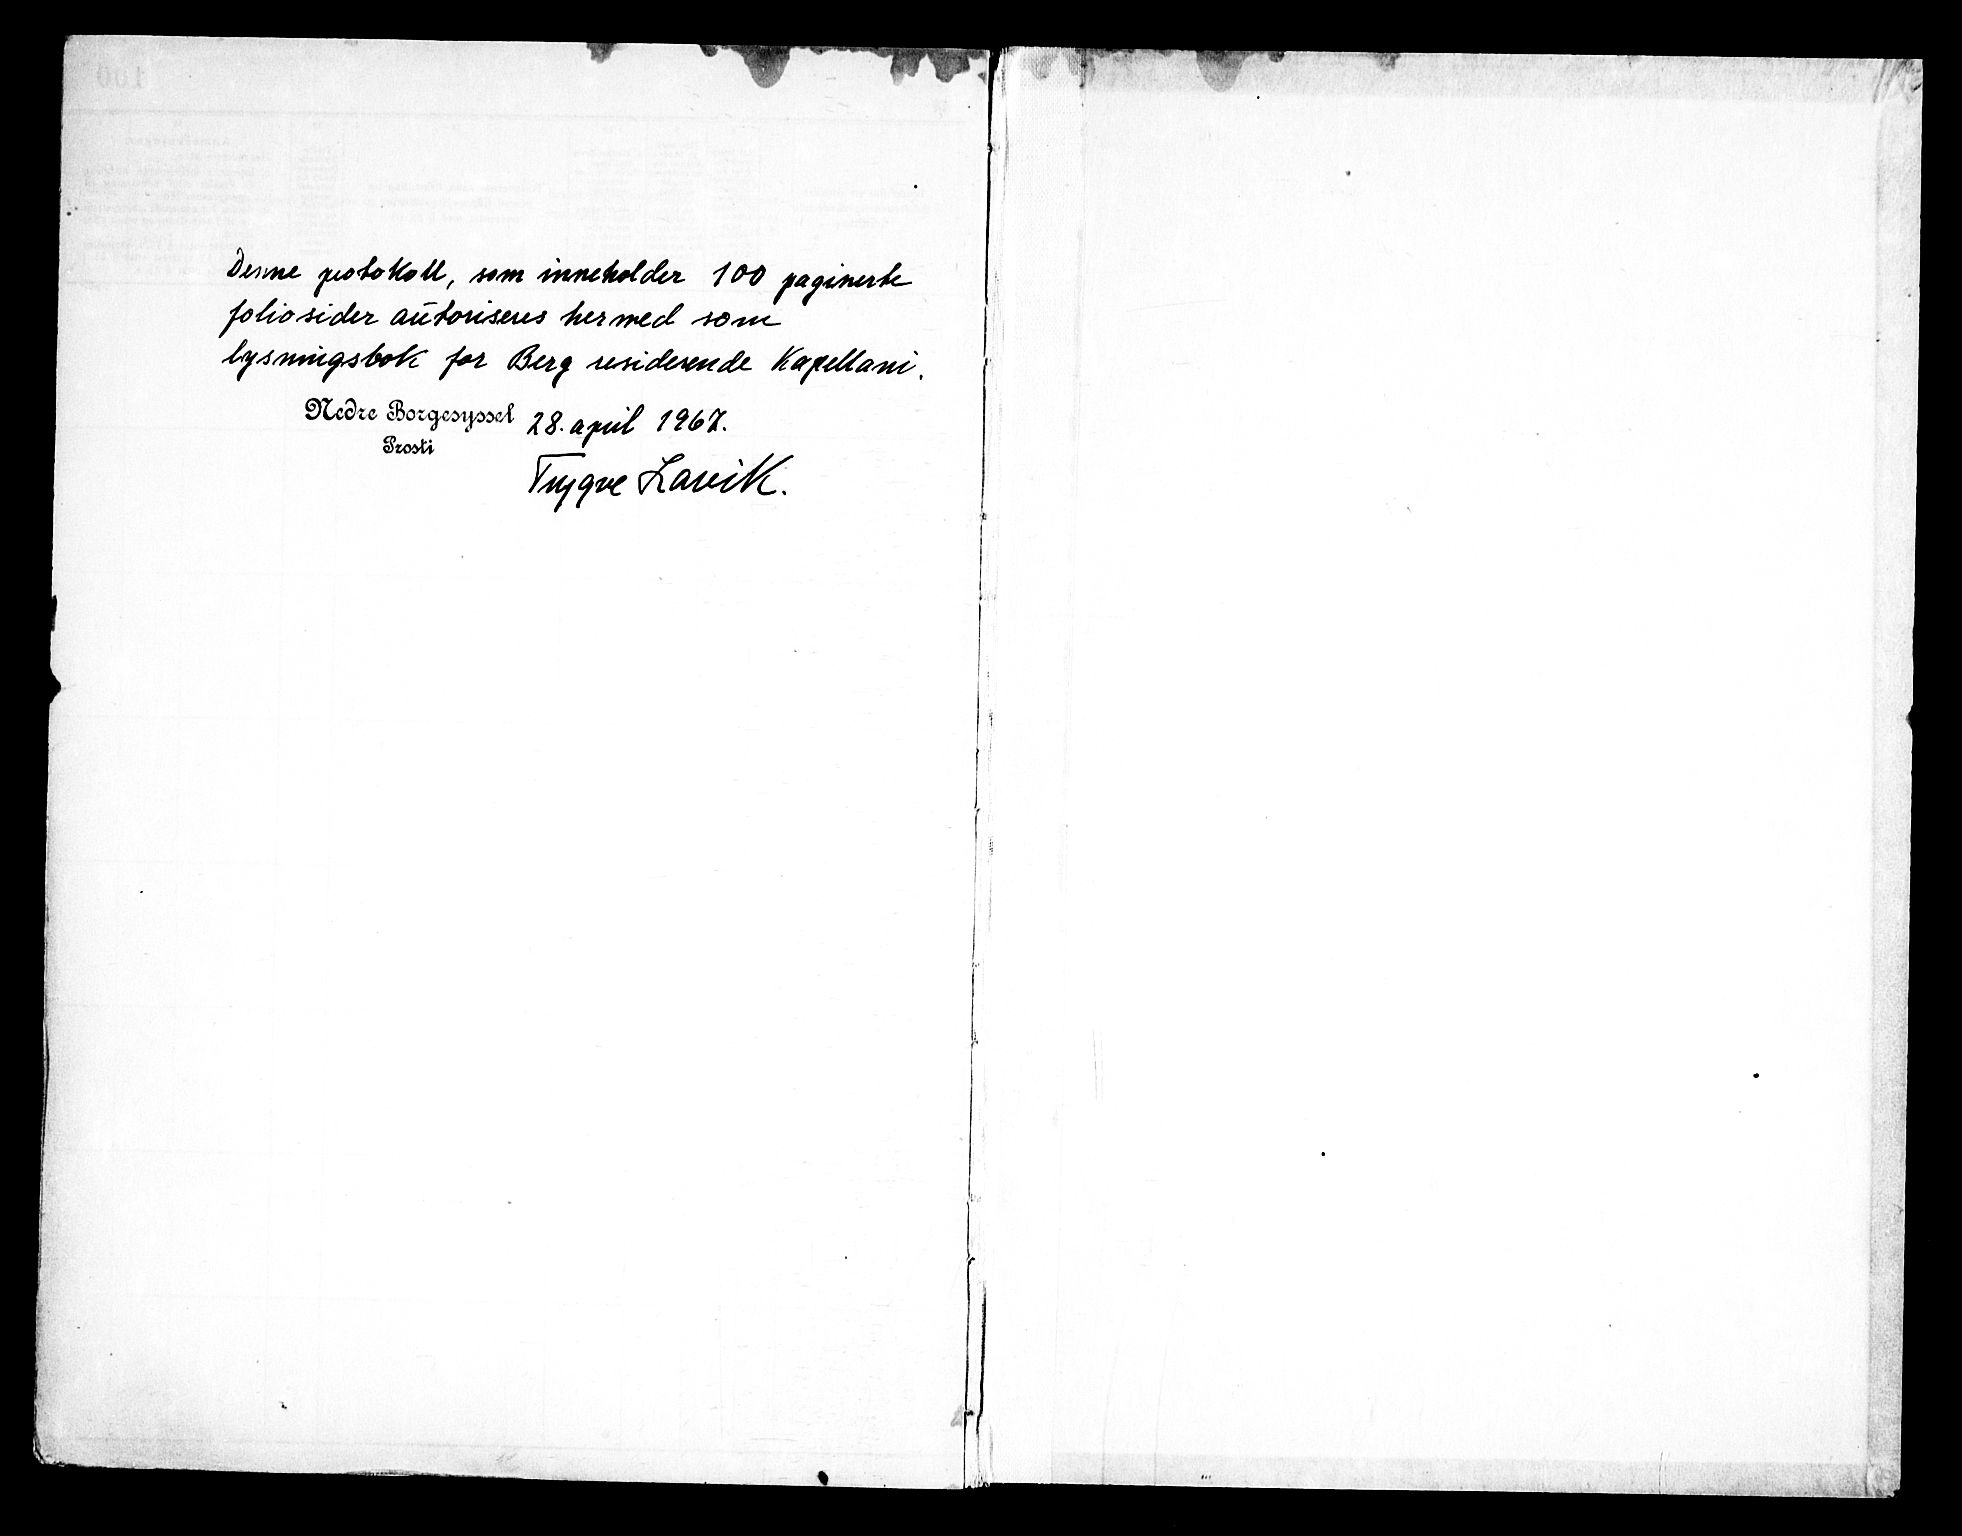 Denne protokoll, som inneholder 100 paginerte
foliosider autoriseres hermed som
lysningsbok for Berg residerende Kapellani.
Nedre Borgesyssel 28. april 1967.
Prosti
Trygve Lavik.